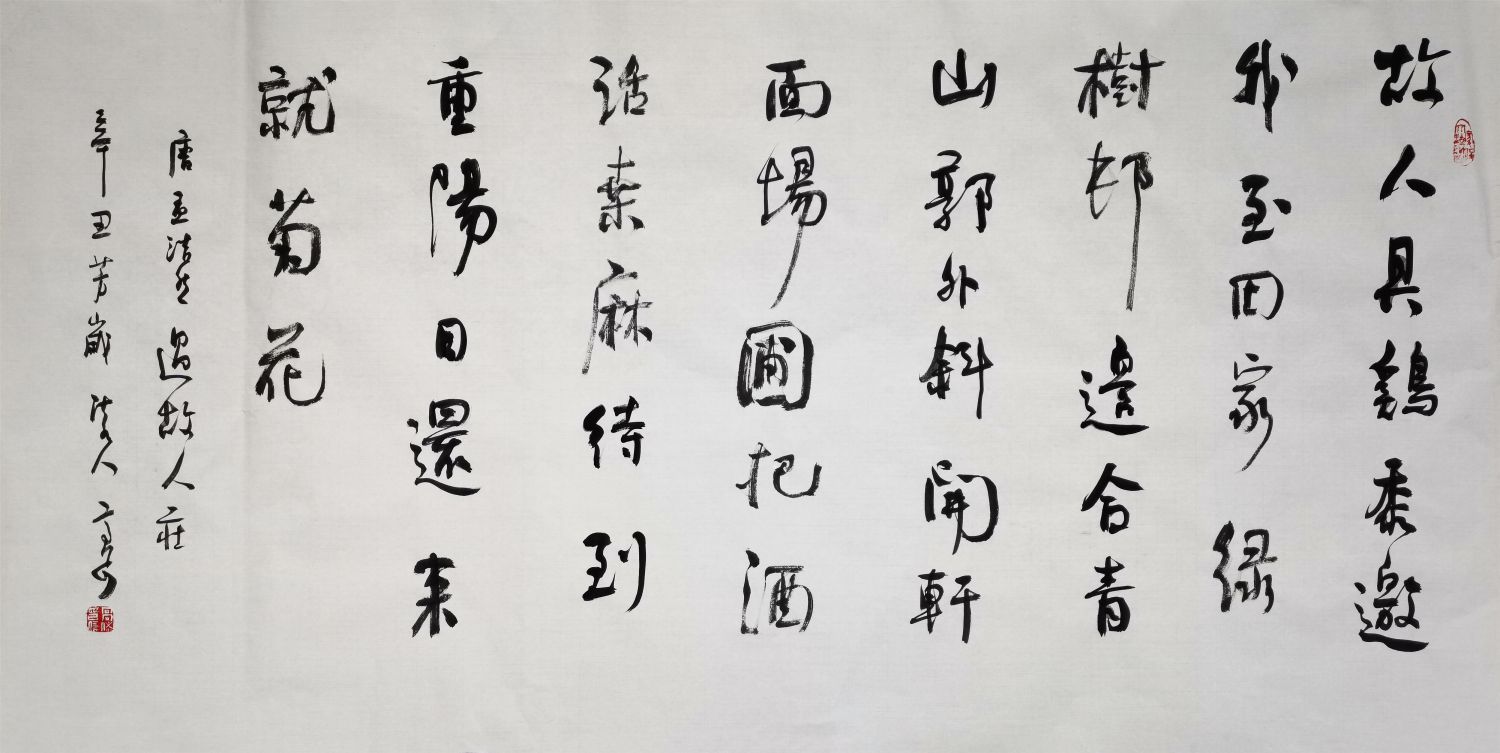 故人具鷄黍邀
我至田家緑
樹邨邊合青
山郭外斜開軒
面場圃把酒
話桑麻待到
重陽日還来
就菊花
唐孟浩然過故人莊
辛丑芳歲人